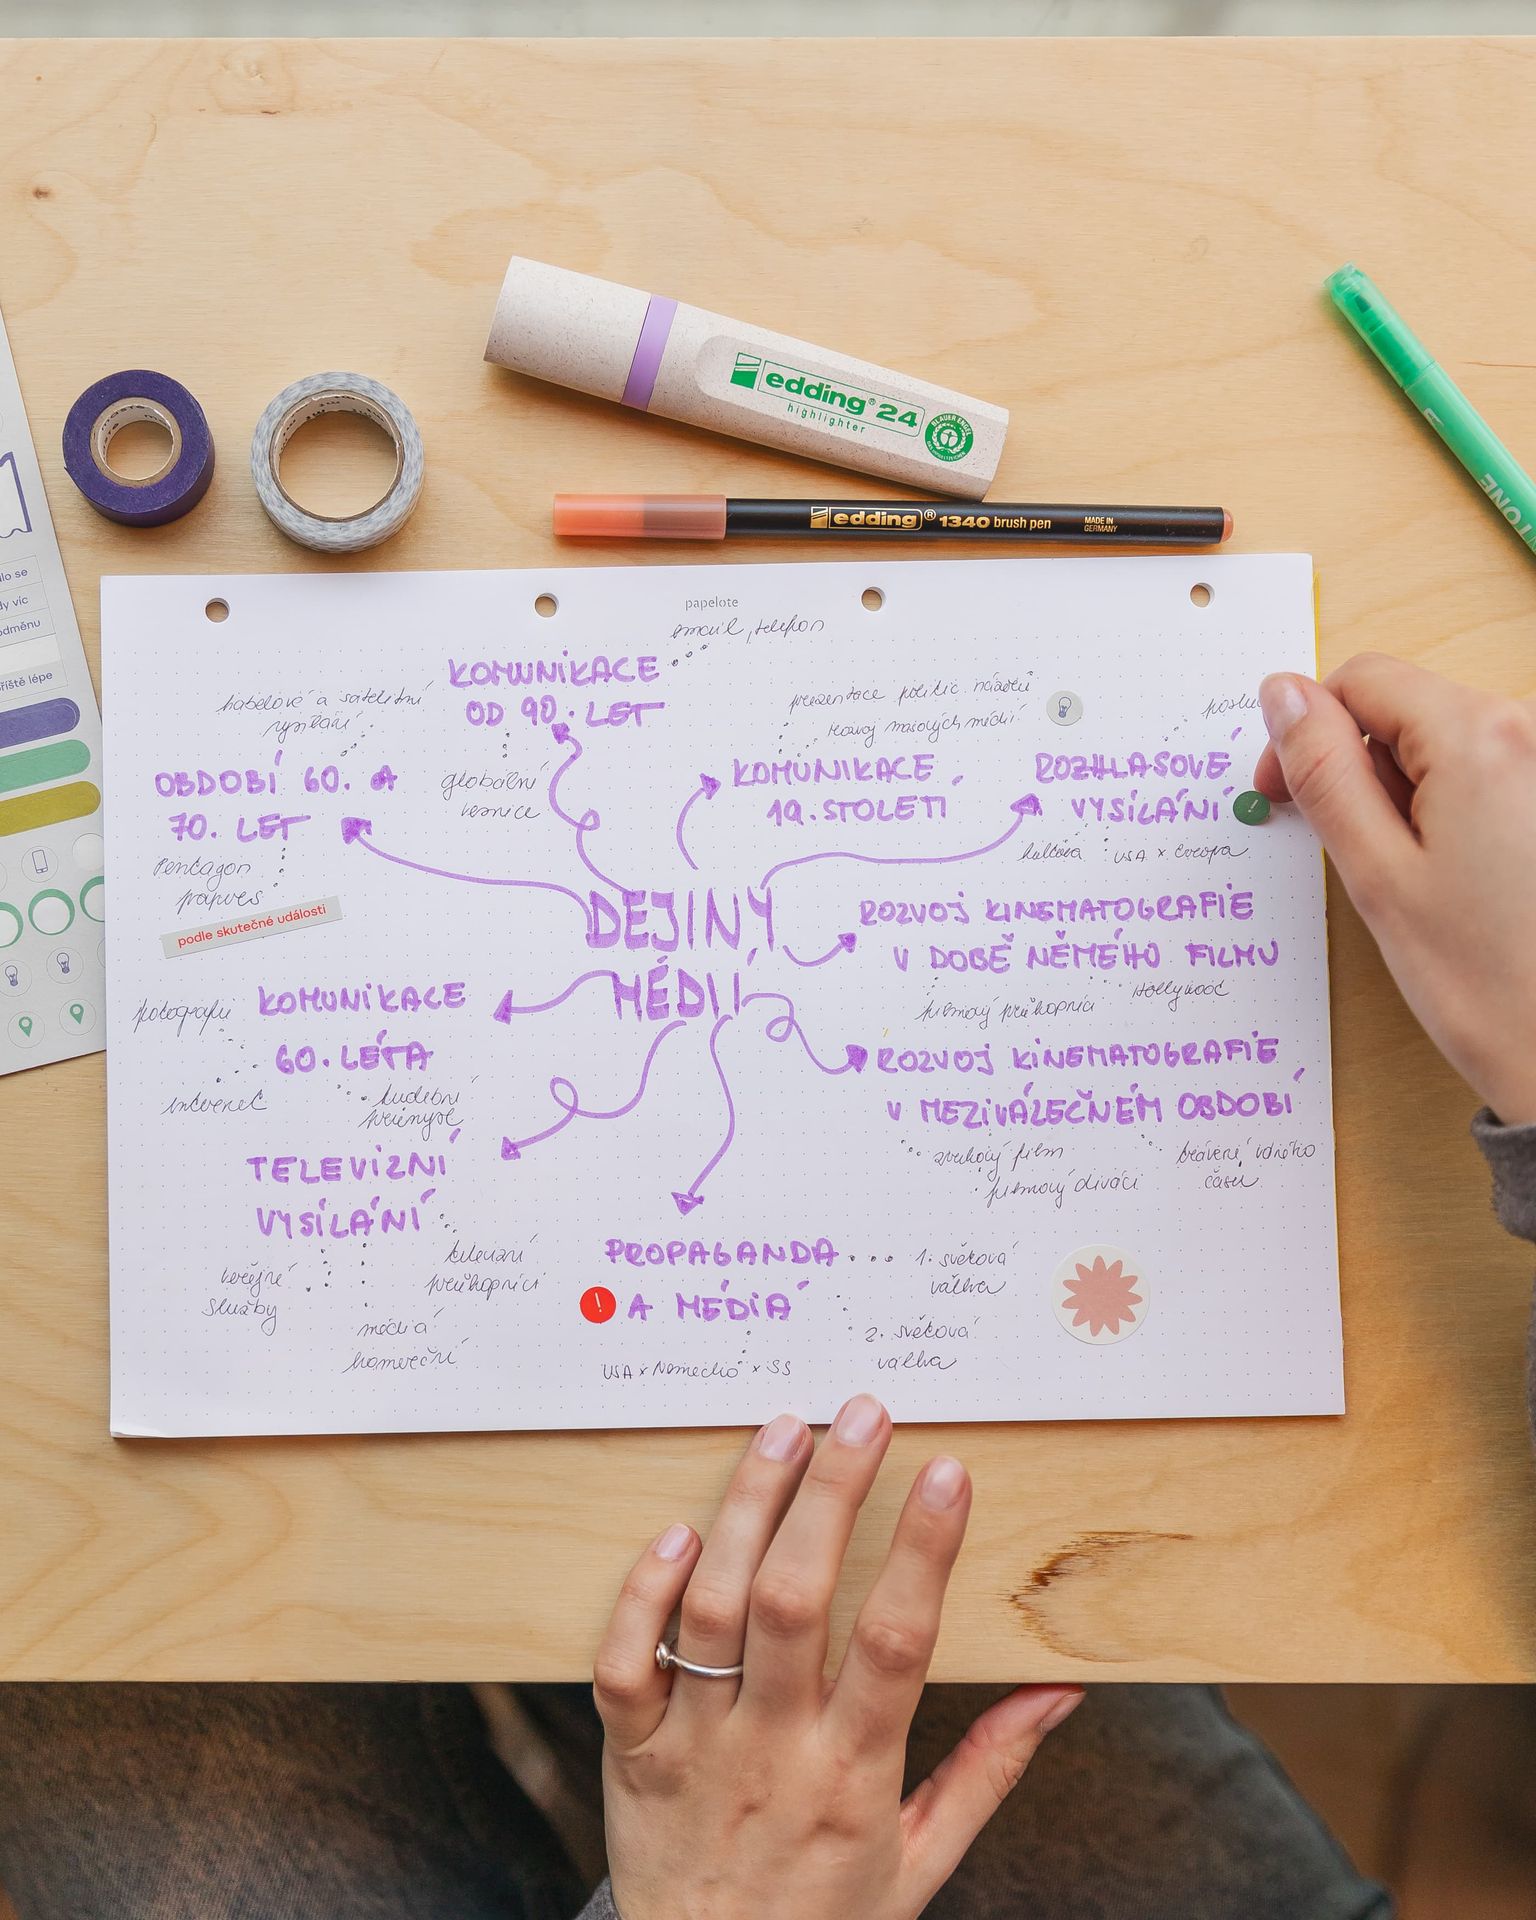 edding 24
highlighter
BLAUER ENGEL
edding® 1340 brush pen MADE IN GERMANY
papelote
email, telefon
KOMUNIKACE
OD 90. LET
globální
vesnice
kabelové a satelitní
vysílání
OBDOBÍ 60. A
70. LET
Pentagon
papers
podle skutečné události
prezentace politic. názorů
rozvoj masových médií
KOMUNIKACE
19. STOLETÍ
ROZHLASOVÉ
VYSÍLÁNÍ
kultura
USA x Evropa
DĚJINY
MÉDIÍ
ROZVOJ KINEMATOGRAFIE
V DOBĚ NĚMÉHO FILMU
filmový průkopníci
Hollywood
ROZVOJ KINEMATOGRAFIE
V MEZIVÁLEČNÉM OBDOBÍ
zvukový film
filmový diváci
trávení volného
času
fotografie
KOMUNIKACE
60. LÉTA
internet
hudební
průmysl
TELEVIZNÍ
VYSÍLÁNÍ
veřejné
služby
televizní
průkopníci
média
komerční
PROPAGANDA
! A MÉDIA
1. světová
válka
2. světová
válka
USA x Německo x SS
lo se
dy víc
odměnu
příště lépe